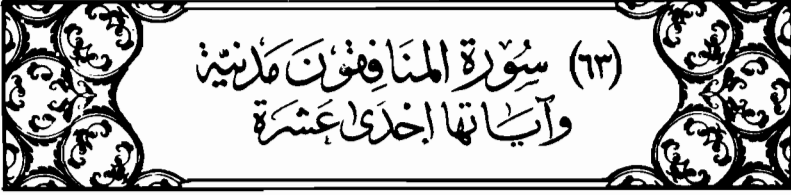 (٦٣) سُوْرَةِ المنَافِقوُنَ مَدَنيَّة
وَآيَاتها اِحْدَىٰ عَشَرَة